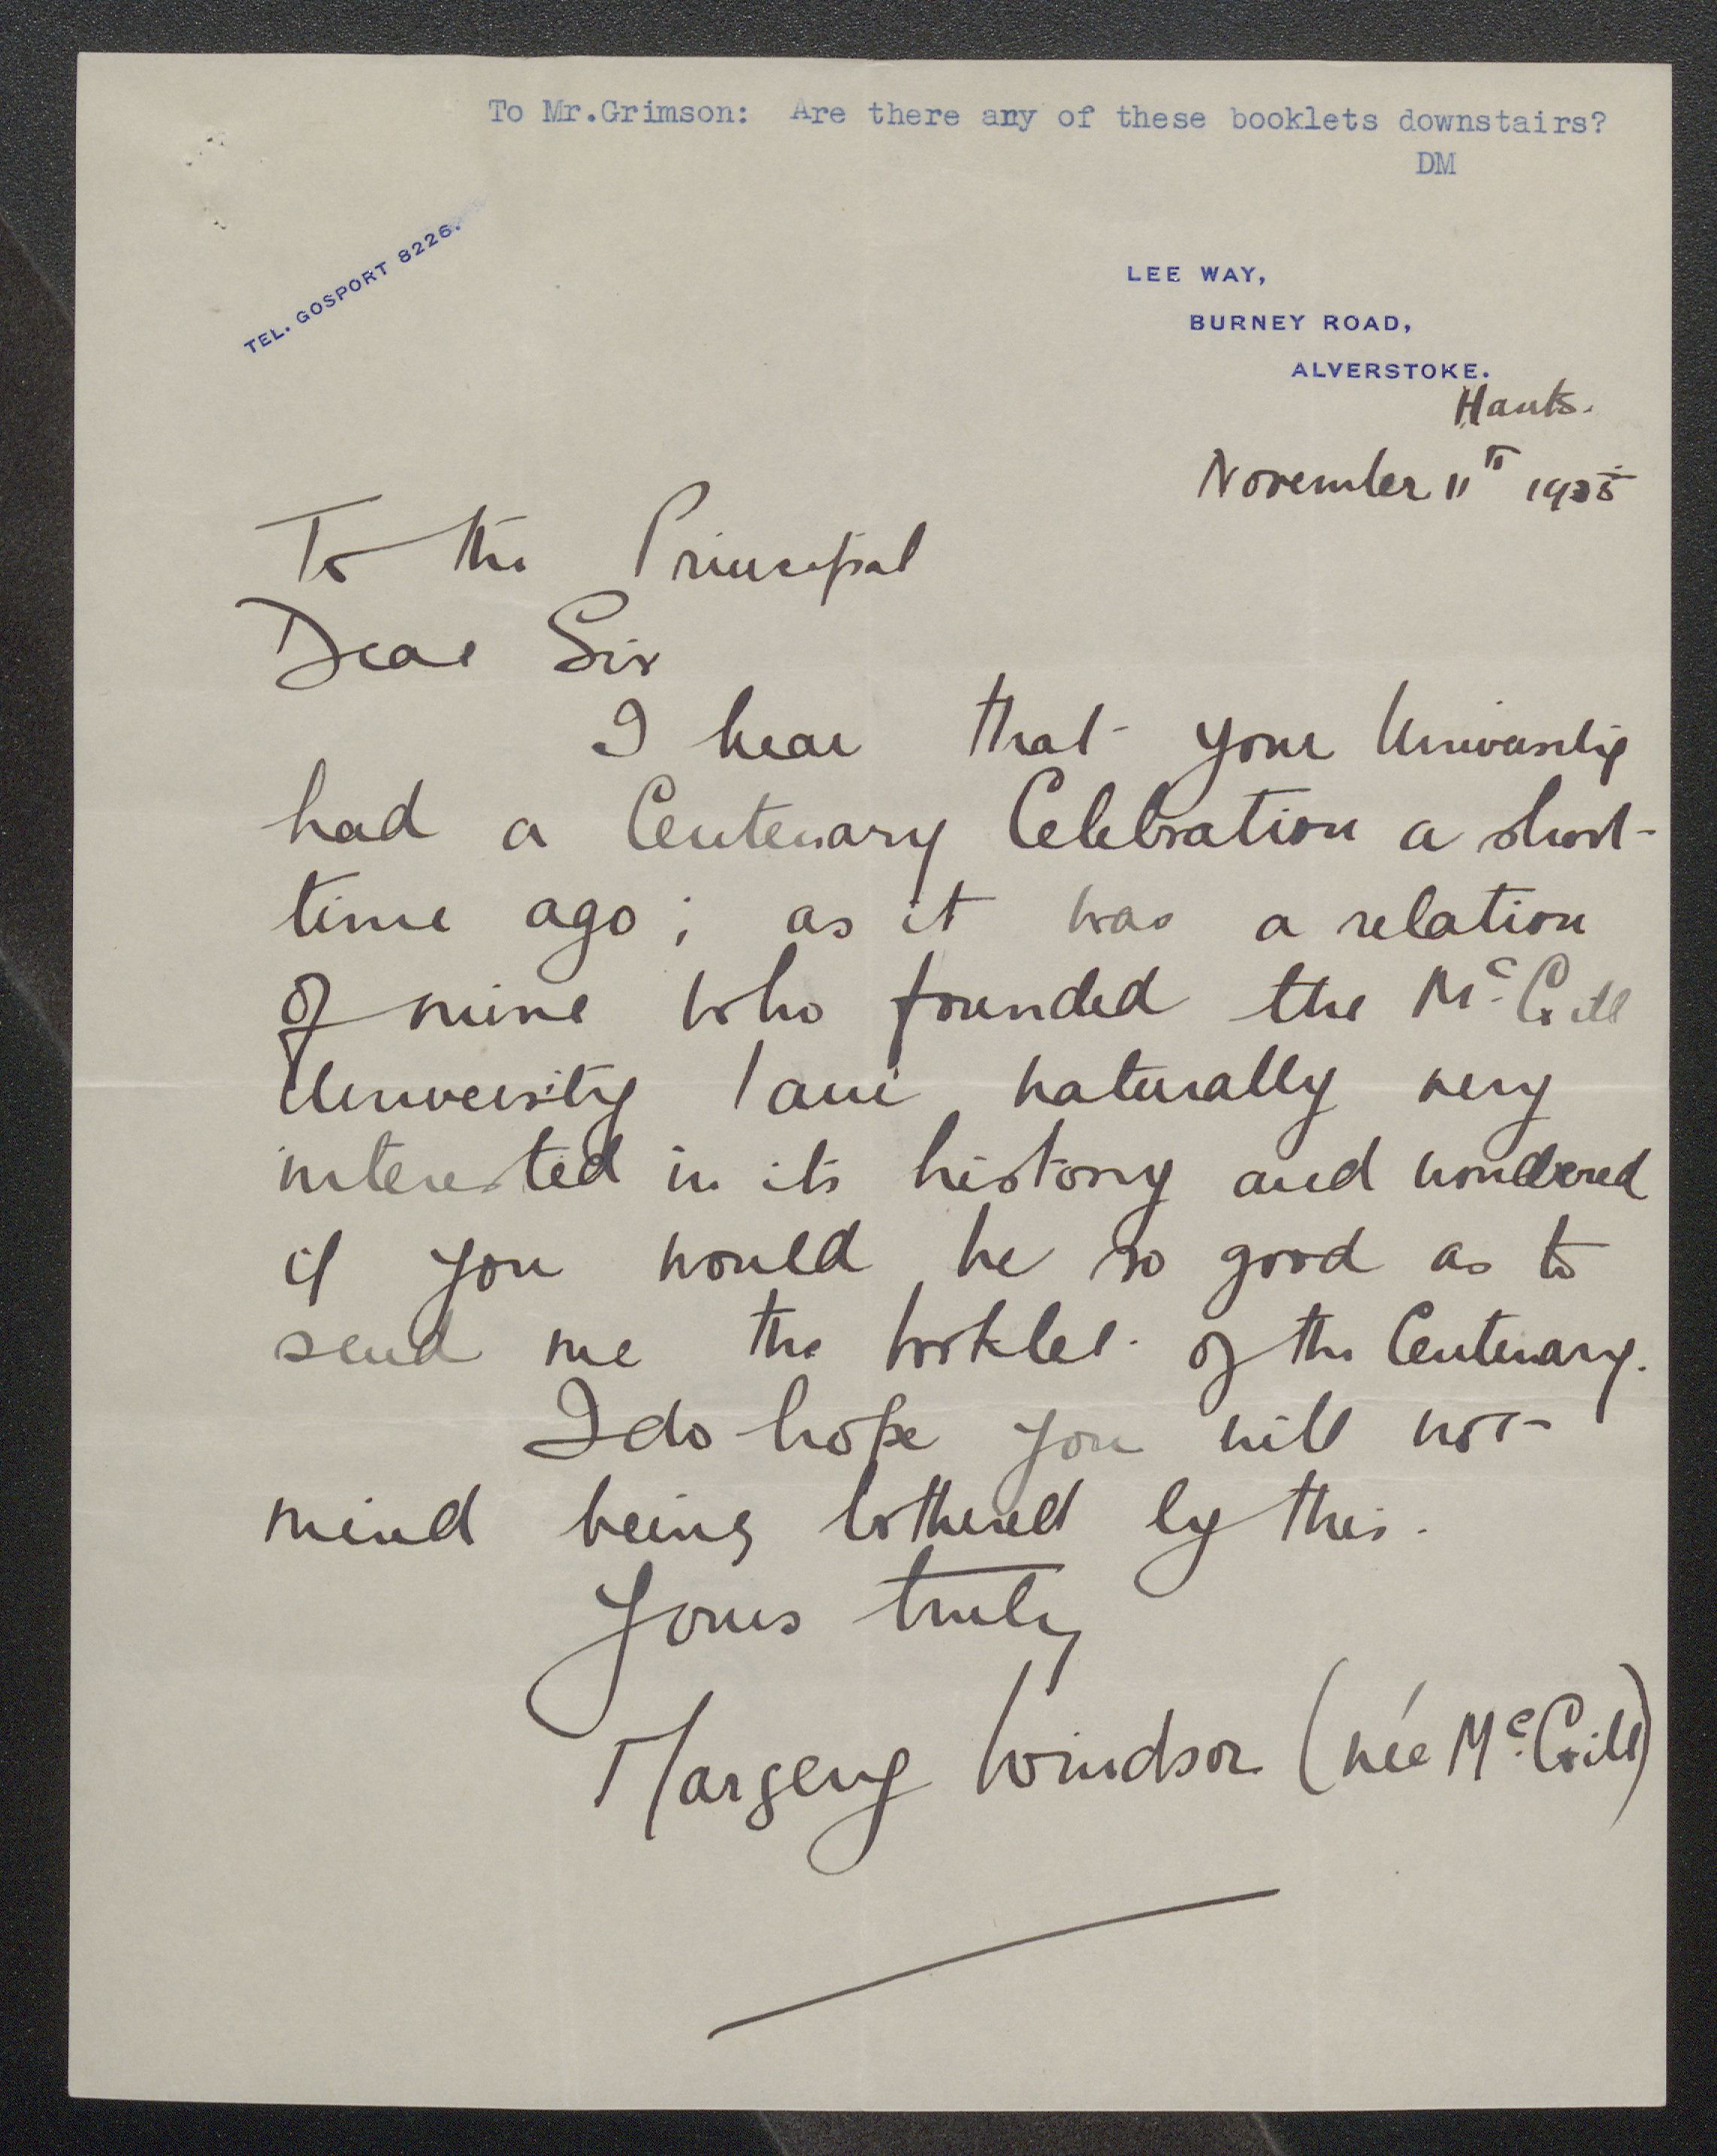 To Mr.Grimson: Are there any of these booklets downstairs?
DM
TEL. GOSPORT 8226.
LEE WAY,
BURNEY ROAD,
ALVERSTOKE.
Hants.
November 11th
To the Principal
Dear Sir
I hear that your University
had a Centenary Celebration a short
time ago; as it was a relation
of mine who founded the McGill
University I am naturally very
interested in its history and wondered
if you would be so good as to
send me the booklet of the Centenary.
I do hope you will not
mind being bothered by this.
Yours truly
Margery Windsor (née McGill)